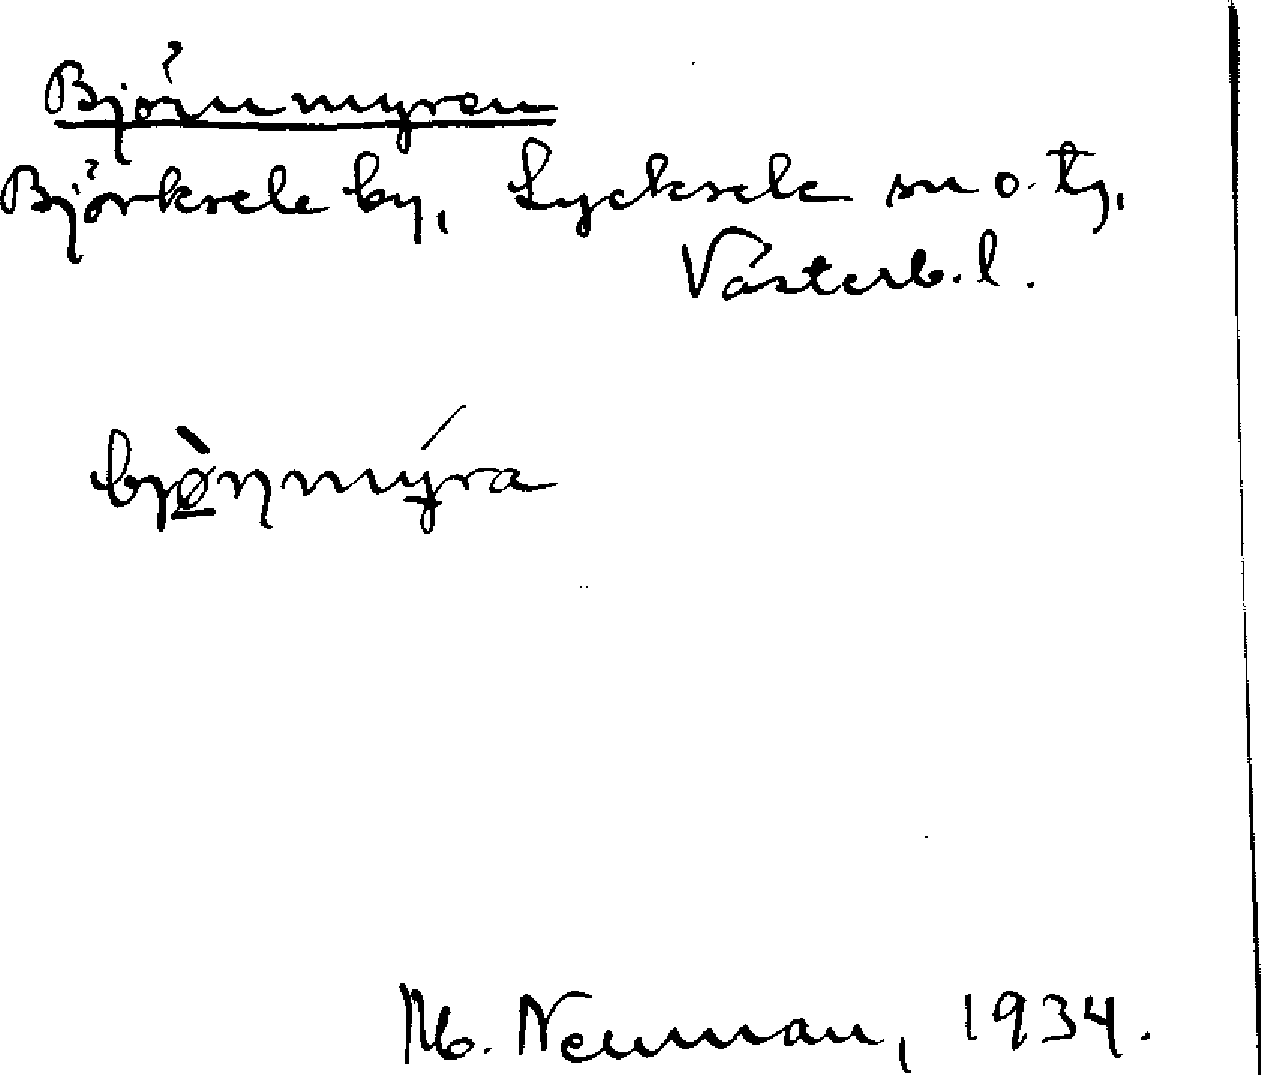 Björnmyren
Björksele by, Lycksele sn o. tg,
Västerb. l.
bjø̀ṇmýra
M. Neuman, 1934.